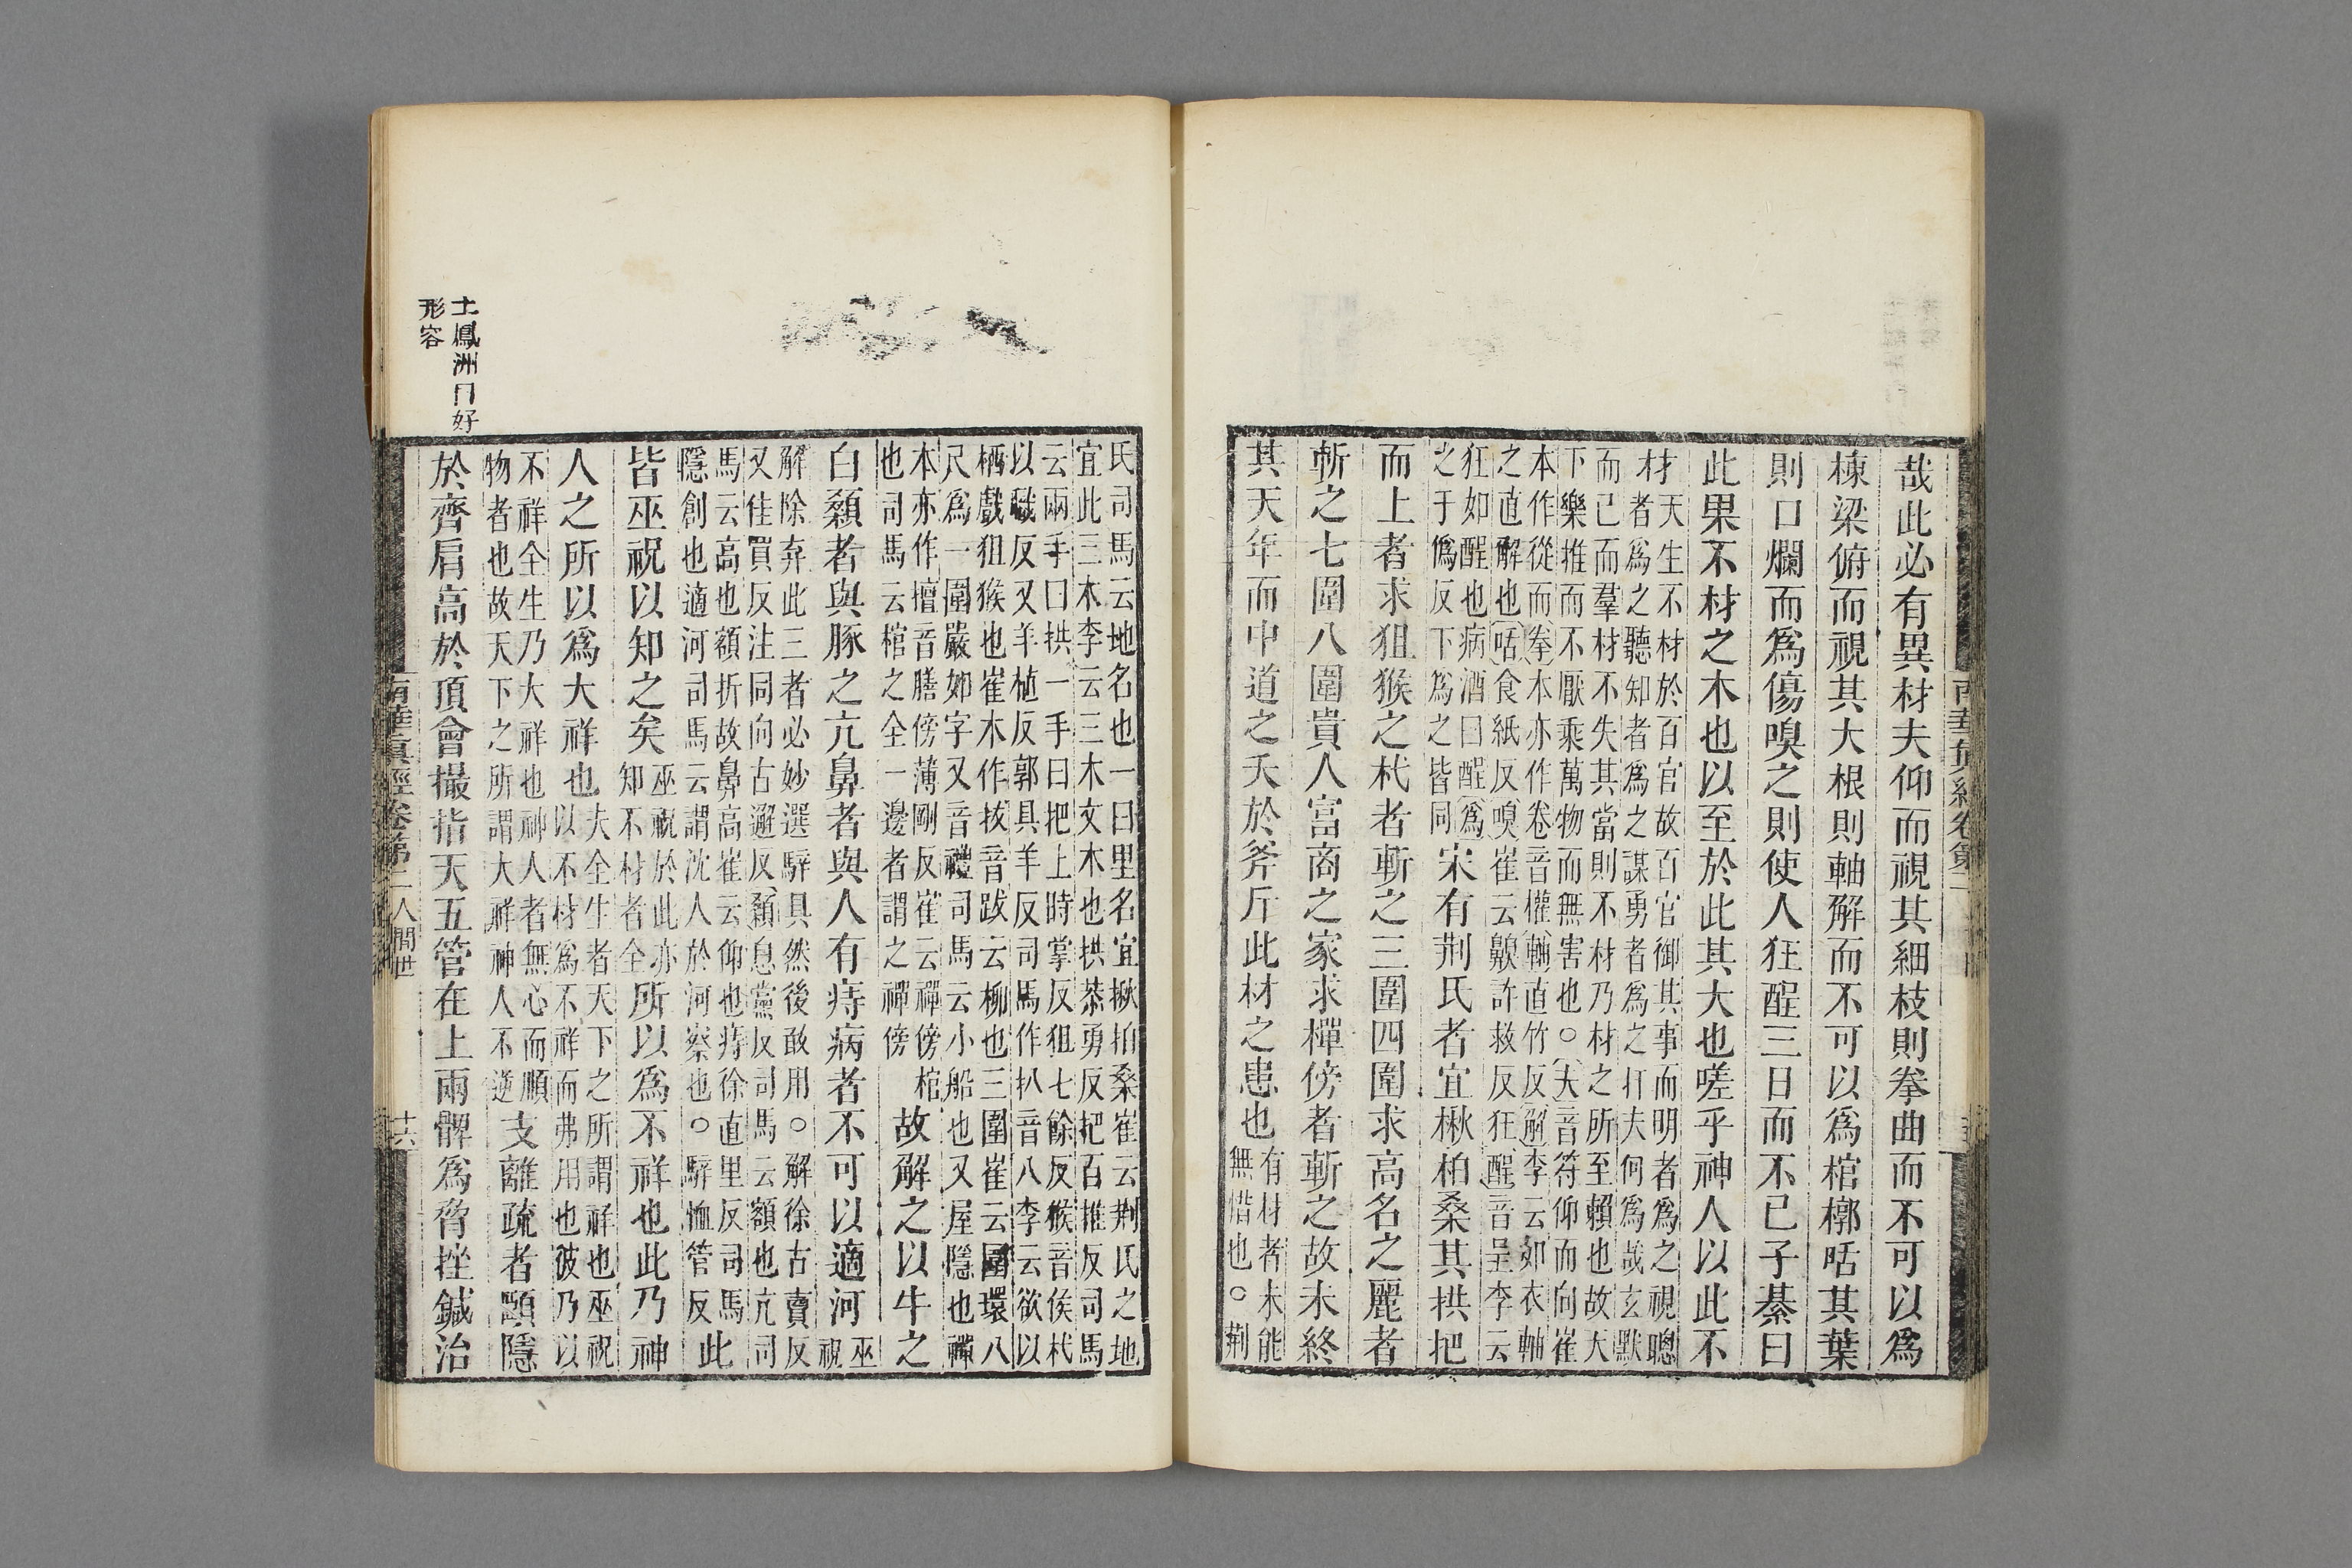 哉此必有異材夫仰而視其細枝則拳曲而不可以爲
棟梁俯而視其大根則軸解而不可以爲棺槨咶其葉
則口爛而爲傷嗅之則使人狂酲三日而不已子綦曰
此果不材之木也以至於此其大也嗟乎神人以此不
材天生不材於百官故百官御其事而明者爲之視聰
者爲之聽知者爲之謀勇者爲之扞夫何爲哉玄默
而已而羣材不失其當則不材乃材之所至賴也故天
下樂推而不厭乘萬物而無害也○夫音符仰而向崔
本作從而拳本亦作卷音權軸直竹反解李云如衣軸
之直解也咶食紙反嗅崔云齅許救反狂酲音呈李云
狂如酲也病酒曰酲爲
之于僞反下爲之皆同
宋有荆氏者宜楸柏桑其拱把
而上者求狙猴之杙者斬之三圍四圍求高名之麗者
斬之七圍八圍貴人富商之家求樿傍者斬之故未終
其天年而中道之夭於斧斤此材之患也
有材者未能
無惜也○荆
氏司馬云地名也一曰里名宜楸柏桑崔云荆氏之地
宜此三木李云三木文木也拱恭勇反把百雅反司馬
云兩手曰拱一手曰把上時掌反狙七餘反猴音侯杙
以職反又羊植反郭且羊反司馬作朳音八李云欲以
栖戲狙猴也崔本作抜音跋云柳也三圍崔云圍環八
尺爲一圍嚴如字又音禮司馬云小船也又屋隱也樿
本亦作壇音膳傍薄剛反崔云樿傍棺
也司馬云棺之全一邊者謂之樿傍
故解之以牛之
白顙者與豚之亢鼻者與人有痔病者不可以適河
巫
祝
解除弃此三者必妙選騂具然後敢用○解徐古賣反
又佳買反注同向古邂反顙息黨反司馬云額也亢司
馬云高也額折故鼻高崔云仰也痔徐直里反司馬
隱創也適河司馬云謂沈人於河察也○騂恤管反
此
皆巫祝以知之矣
巫祝於此亦
知不材者全
所以爲不祥也此乃神
人之所以爲大祥也
夫全生者天下之所謂祥也巫祝
以不材爲不祥而弗用也彼乃以
不祥全生乃大祥也神人者無心而順
物者也故天下之所謂大祥神人不逆
支離疏者頤隱
於齊肩高於頂會撮指天五管在上兩髀爲脅挫鍼治
南華真經卷第二
人間世
十六
王鳳洲曰好
形容